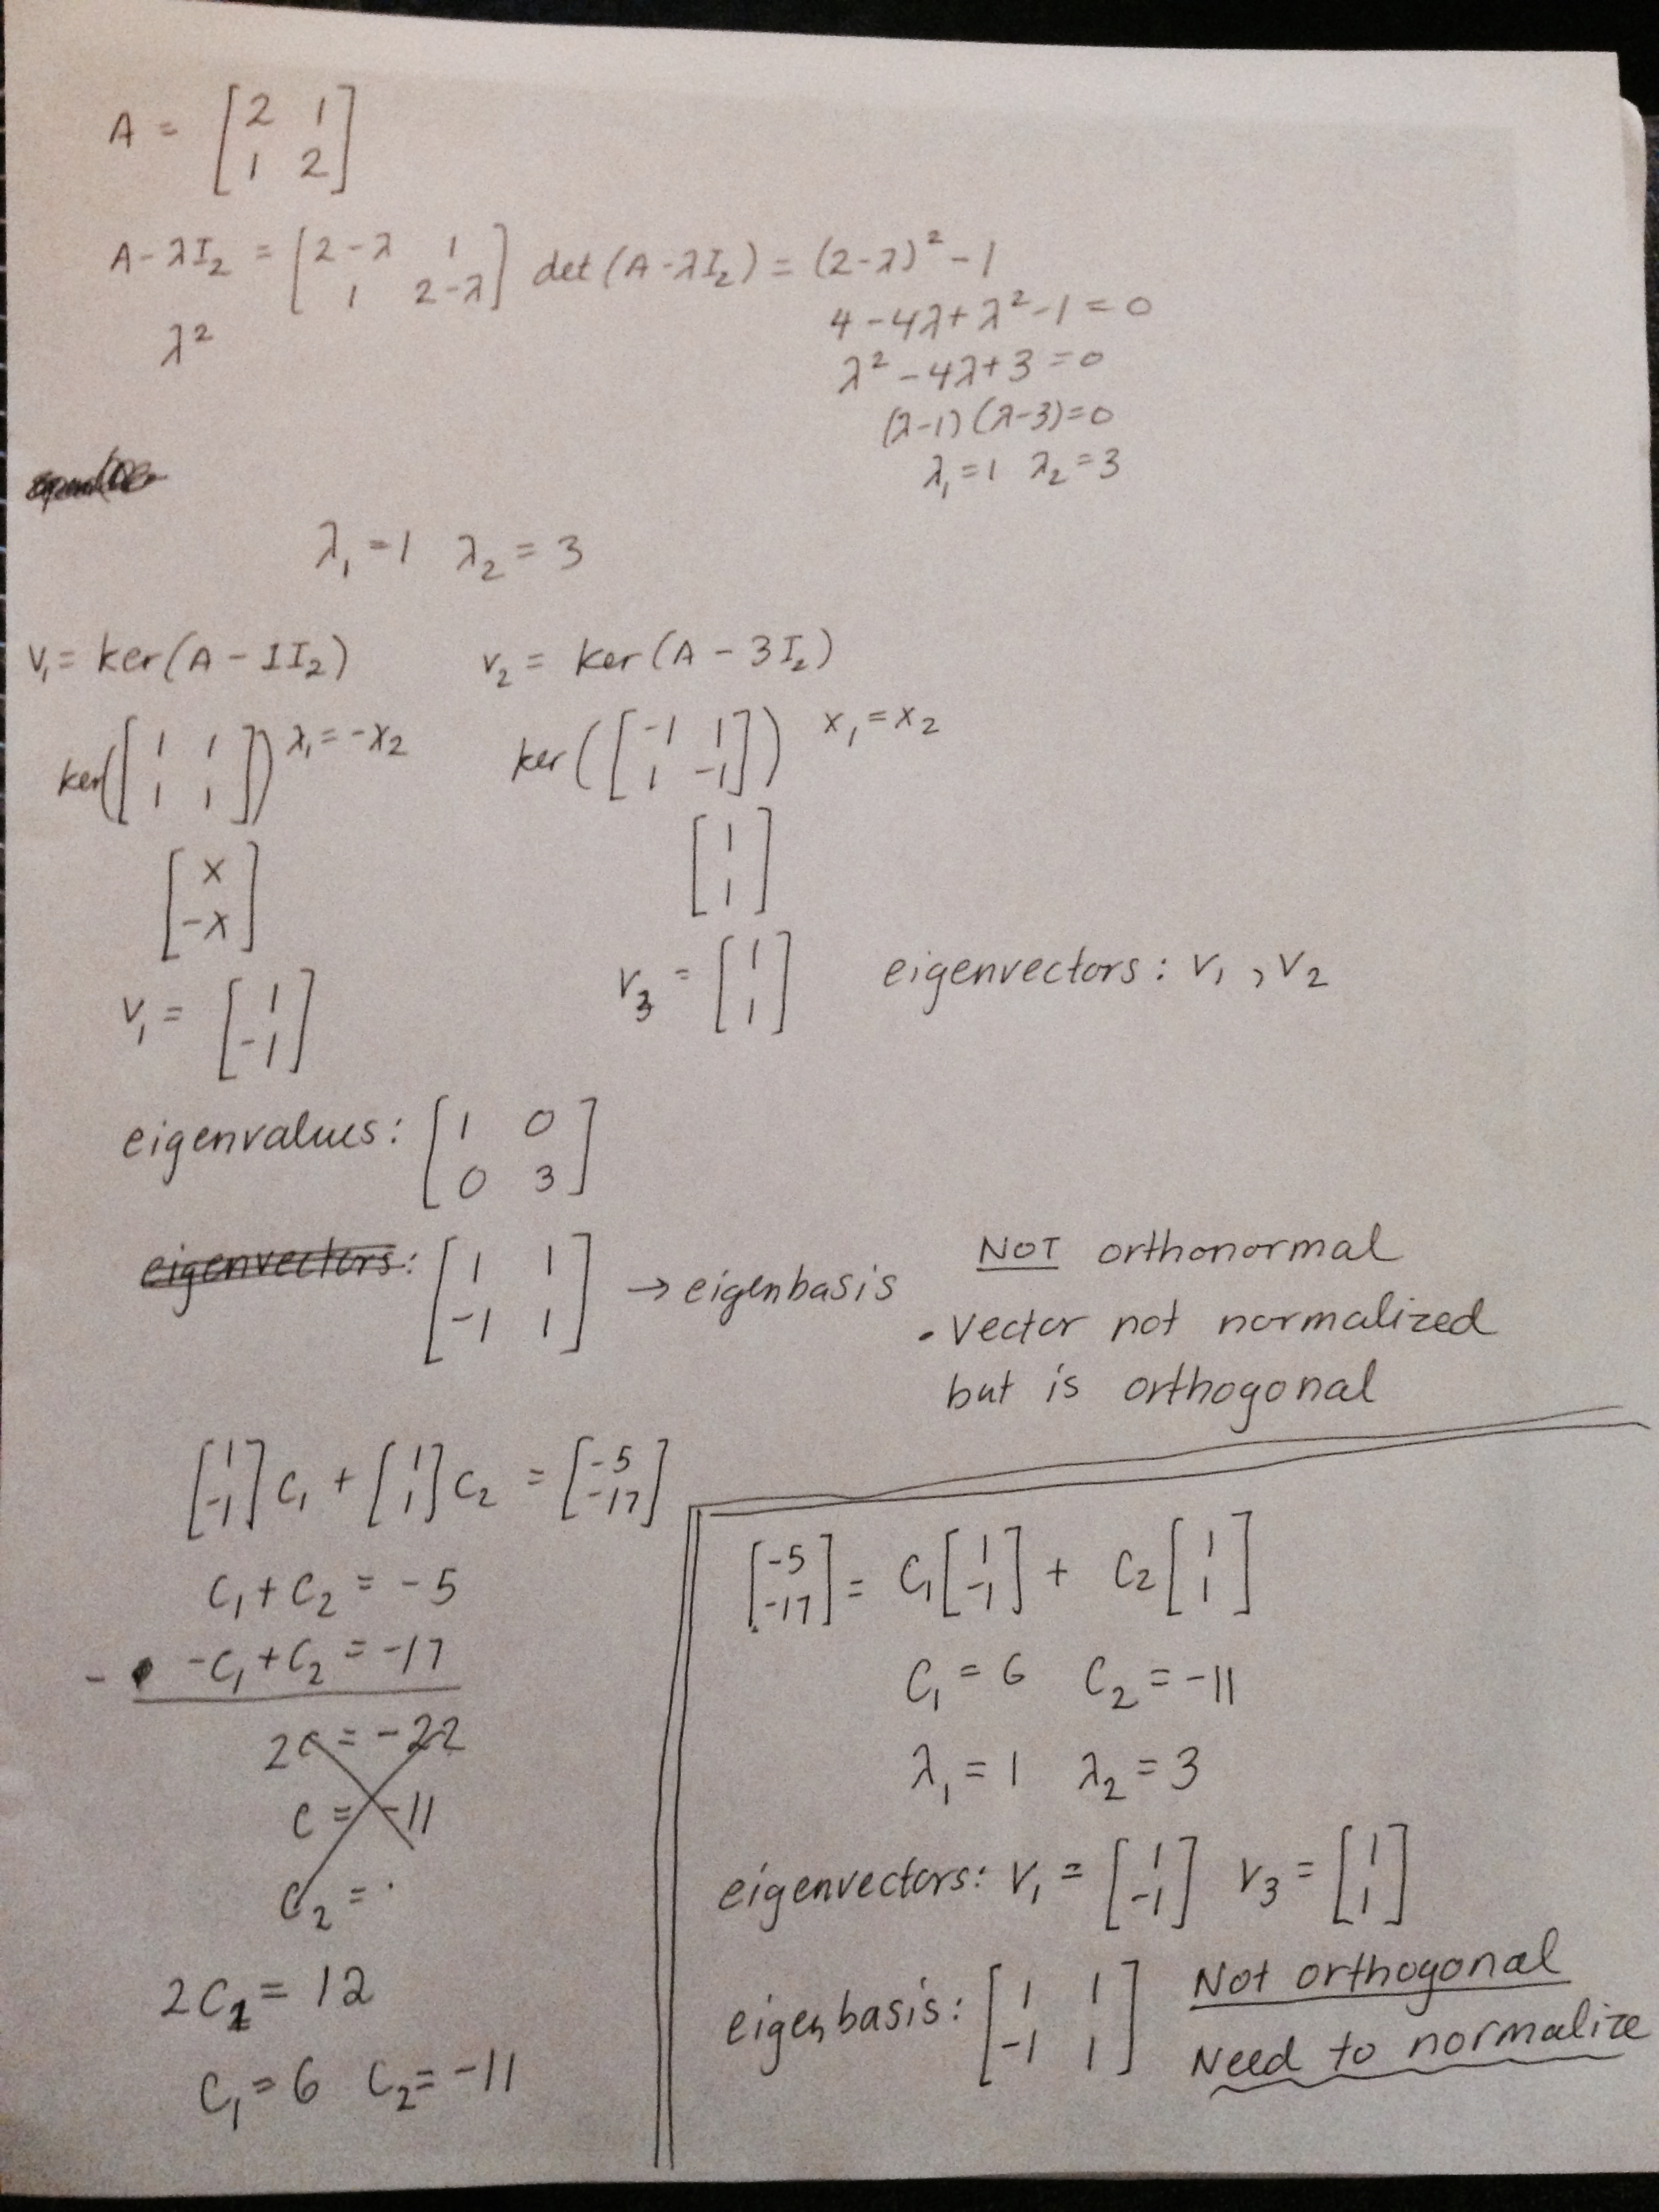 A = [2 1
1 2]
A - λI₂ = [2-λ 1
1 2-λ] det(A-λI₂) = (2-λ)² - 1
4 - 4λ + λ² - 1 = 0
λ²
λ² - 4λ + 3 = 0
(λ-1)(λ-3) = 0
λ₁ = 1 λ₂ = 3
λ₁ = 1 λ₂ = 3
v₁ = ker(A - 1I₂) v₂ = ker(A - 3I₂)
ker([1 1
1 1]) x₁ = -x₂
ker([-1 1
1 -1]) x₁ = x₂
[x
-x]
[1
1]
v₁ = [1
-1]
v₃ = [1
1]
eigenvectors: v₁, v₂
eigenvalues: [1 0
0 3]
eigenvectors: [1 1
-1 1] → eigenbasis
NOT orthonormal
• vector not normalized
but is orthogonal
[1
-1] c₁ + [1
1] c₂ = [-5
-17]
c₁ + c₂ = -5
- -c₁ + c₂ = -17
2c = -22
c = -11
c₂ = ·
2c₁ = 12
c₁ = 6 c₂ = -11
[-5
-17] = c₁ [1
-1] + c₂ [1
1]
c₁ = 6 c₂ = -11
λ₁ = 1 λ₂ = 3
eigenvectors: v₁ = [1
-1] v₃ = [1
1]
eigenbasis: [1 1
-1 1]
Not orthogonal
Need to normalize